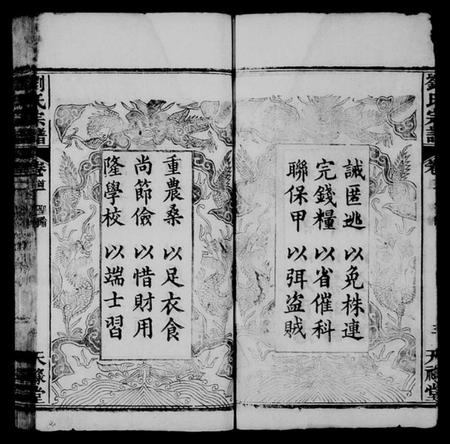 劉氏宗譜
天祿堂
誡匿逃 以免株連
完錢糧 以省催科
聯保甲 以弭盜賊
重農桑 以足衣食
尚節儉 以惜財用
隆學校 以端士習
劉氏宗譜
卷首
天祿堂